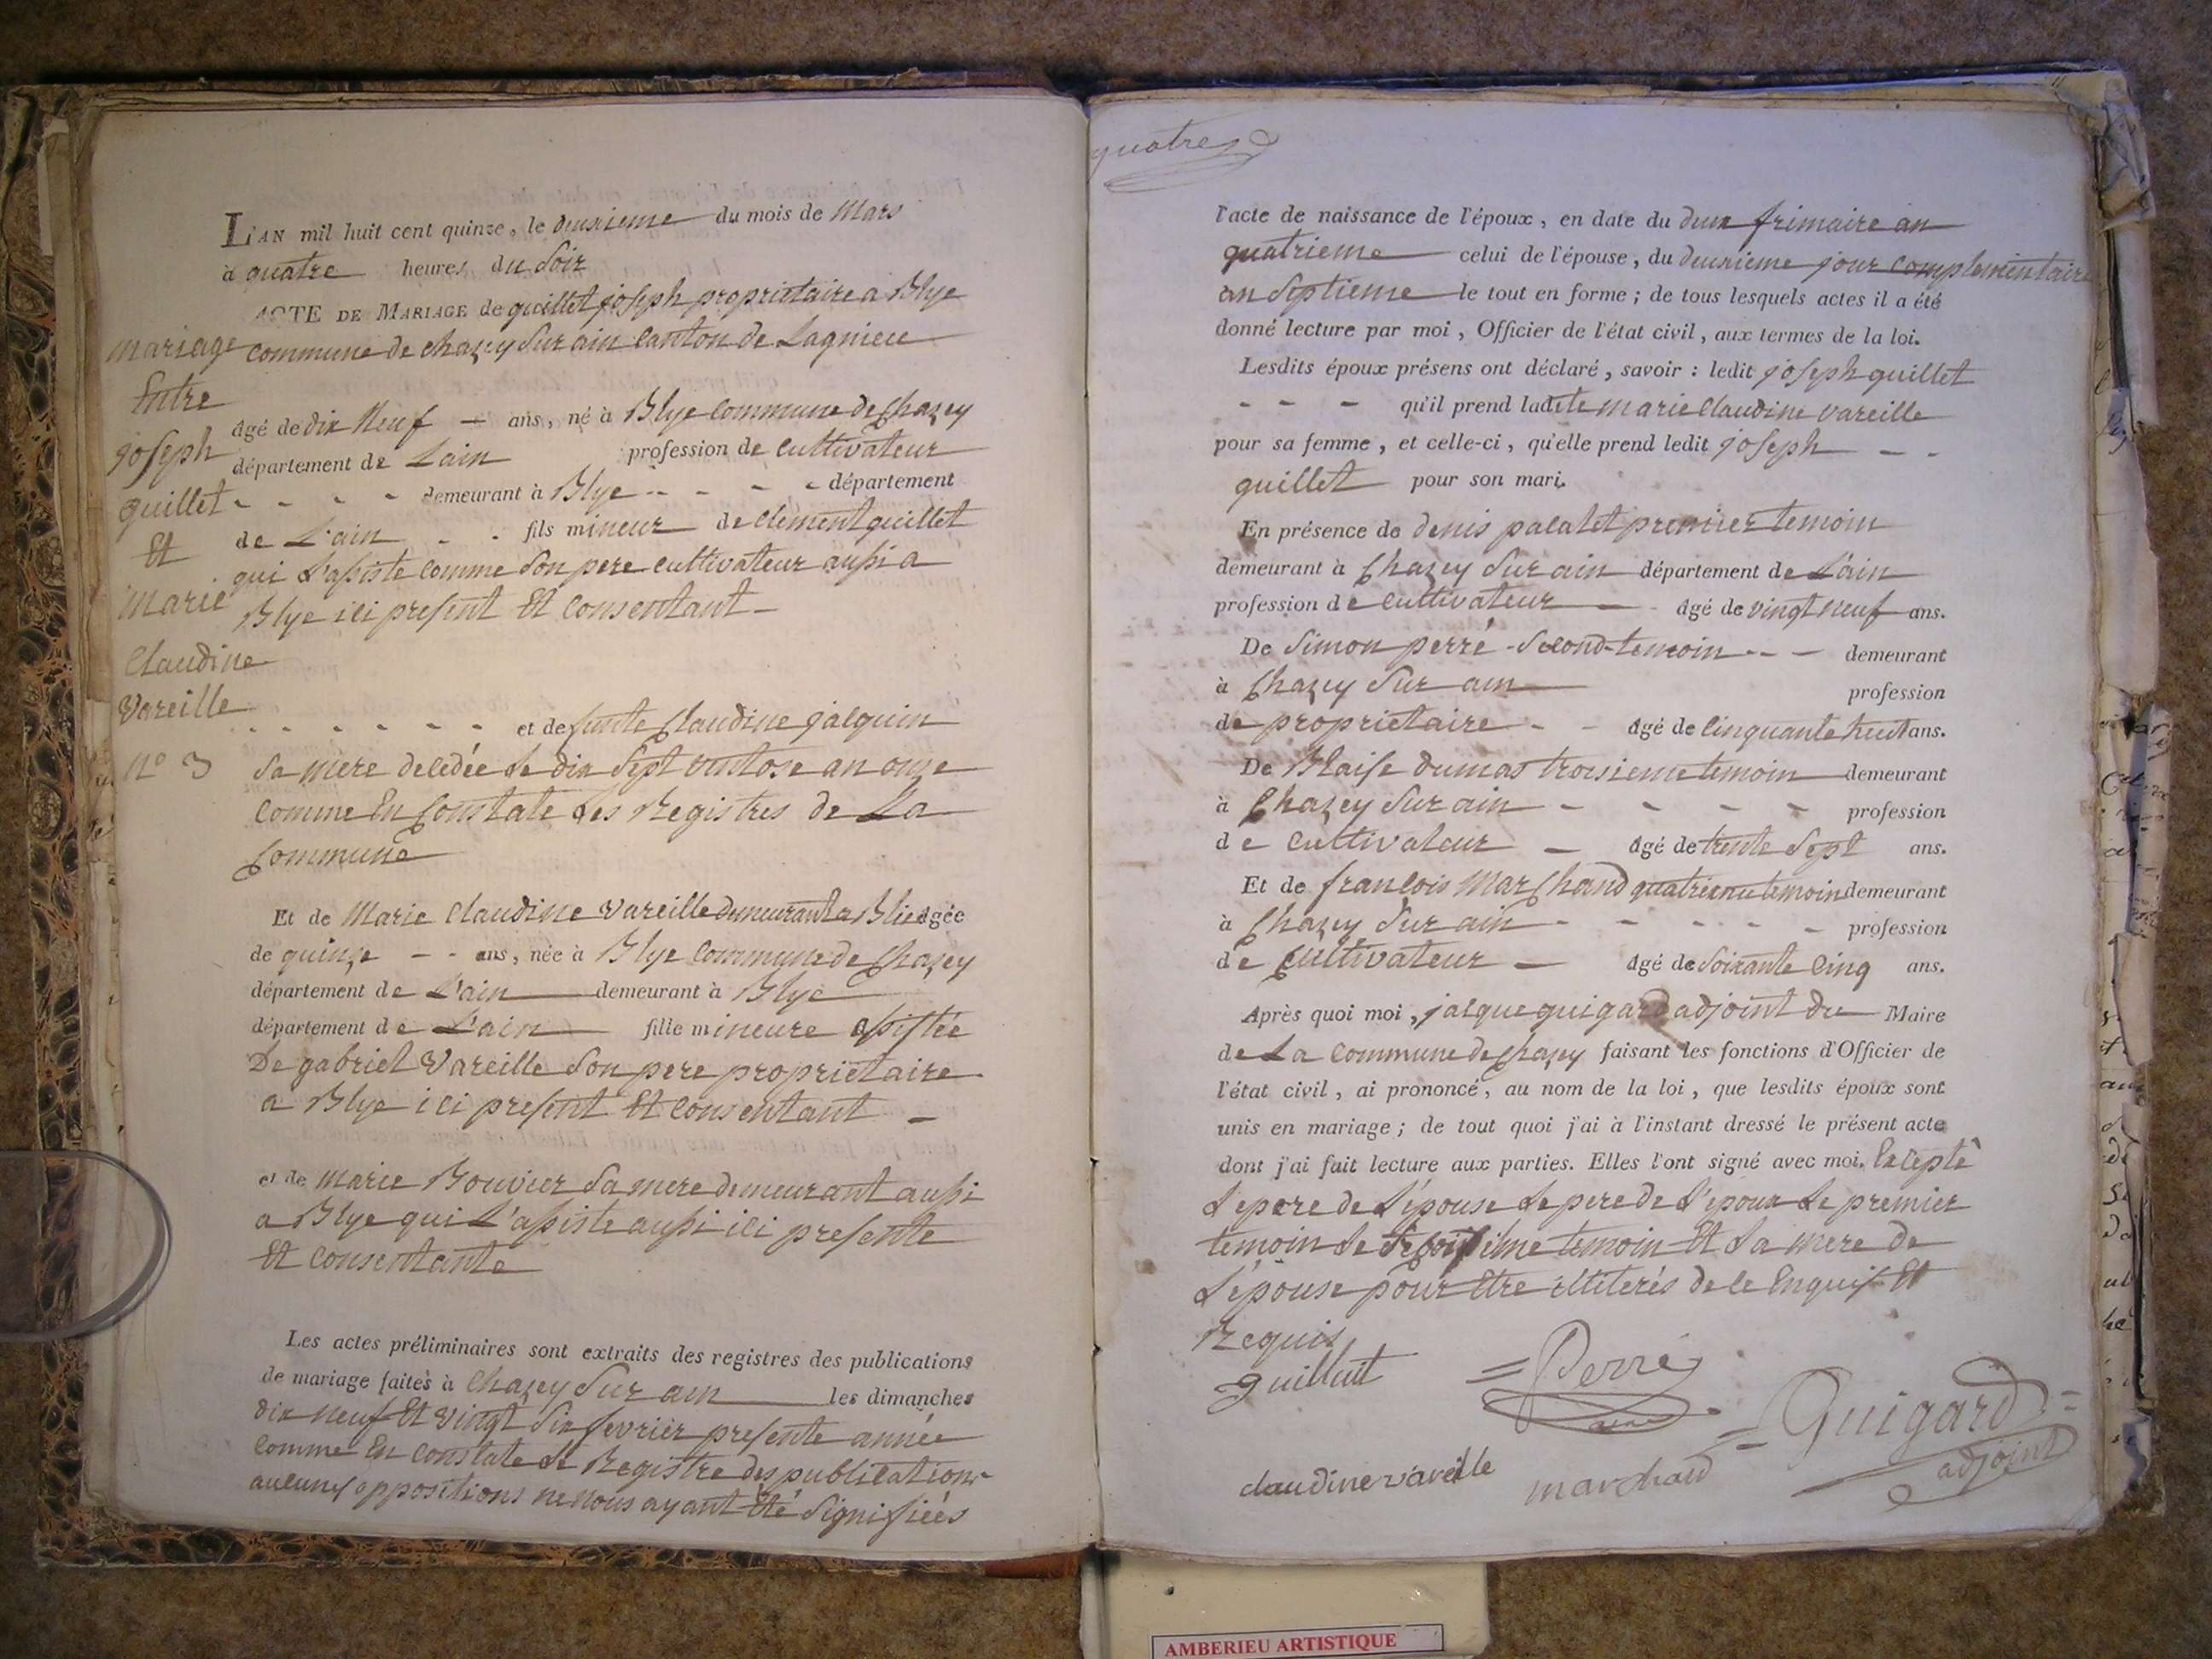 L'AN mil huit cent quinze, le deuxieme du mois de Mars
à quatre heures du Soir
ACTE DE MARIAGE de quillet joseph proprietaire a Blye
commune de chazey Sur ain Canton de Lagnieu
mariage
Entre
joseph
quillet
Et
Marie
Claudine
Vareille
n° 3
âgé de dix Neuf - ans, né à Blye Commune de Chazey
département de Lain profession de cultivateur
- - - - demeurant à Blye - - - - département
de L'ain - - fils mineur de clement quillet
qui L'assiste comme Son pere cultivateur aussi a
Blye ici present Et Consentant -
- - - - - - et de funte Claudine jalquin
Sa mere delédée Le dix Sept ventose an onse
Comme En Constate Les Registres de La
Commune
Et de Marie Claudine Vareille demeurant a Blie âgée
de quinze - - ans, née à Blye Commune de Chazey
département de L'ain demeurant à Blye
département de L'ain fille mineure assistée
De gabriel Vareille Son pere proprietaire
a Blye ici present Et Consentant -
et de marie Bouvier Sa mere demeurant aussi
a Blye qui L'assiste aussi ici presente
Et Consentante
Les actes préliminaires sont extraits des registres des publications
de mariage faites à Chazey Sur ain les dimanches
dix neuf Et vingt Six fevrier presente année
Comme En Constate Le Registre des publications
aucunes oppositions ne nous ayant Eté Signifiées
quatre
l'acte de naissance de l'époux, en date du deux frimaire an
quatrieme celui de l'épouse, du deuxieme jour complementaire
an Septieme le tout en forme; de tous lesquels actes il a été
donné lecture par moi, Officier de l'état civil, aux termes de la loi.
Lesdits époux présens ont déclaré, savoir: ledit joseph quillet
- - - qu'il prend ladite marie Claudine vareille
pour sa femme, et celle-ci, qu'elle prend ledit joseph - -
quillet pour son mari.
En présence de denis palatet premier temoin
demeurant à Chazey Sur ain département de L'ain
profession de cultivateur - âgé de vingt neuf ans.
De Simon perré - Second temoin - - - demeurant
à Chazey Sur ain profession
de proprietaire - - âgé de Cinquante huit ans.
De Blaise dumas troisieme temoin demeurant
à Chazey Sur ain - - - - profession
de cultivateur - âgé de trente Sept ans.
Et de francois Marchand quatrieme temoin demeurant
à Chazey Sur ain - - - - - profession
de Cultivateur - âgé de Soixante Cinq ans.
Après quoi moi, jalque guigard adjoint du Maire
de La Commune de Chazey faisant les fonctions d'Officier de
l'état civil, ai prononcé, au nom de la loi, que lesdits époux sont
unis en mariage; de tout quoi j'ai à l'instant dressé le présent acte
dont j'ai fait lecture aux parties. Elles l'ont signé avec moi. Excepté
Le pere de L'épouse Le pere de L'époux Le premier
temoin Le temoin Et La mere de
L'épouse pour Etre illiterés de le Enquis Et
Requis
guilluit
Perré
Guigard
adjoint
claudine vareille
marchand
AMBERIEU ARTISTIQUE